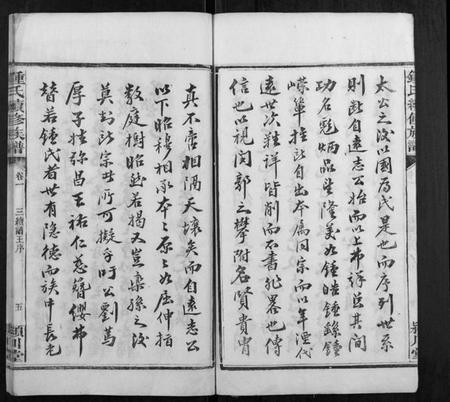 太公之後以國為氏是也而序列世系
則斷自遠志公始而以上弗詳焉其間
功名彪炳品望隆義如鍾皓鍾繇鍾
嶸輩推此自出本屬同宗而以年湮代
遠世次難詳皆削而不書非畧也傳
信也以視同郭之攀附名賢貴胄
真不啻相隔天壤矣而自遠志公
以下昭穆相承本之原之如屈伸指
數庭樹昭然若揭又豈樂孫之後
莫知此宗者所可擬乎吁公劉篤
厚子姓弥昌王祐仁慈簪纓弗
替若鍾氏者世有隱德而族中長老
鍾氏續修族譜
卷一
三續譜王序
五
潁川堂